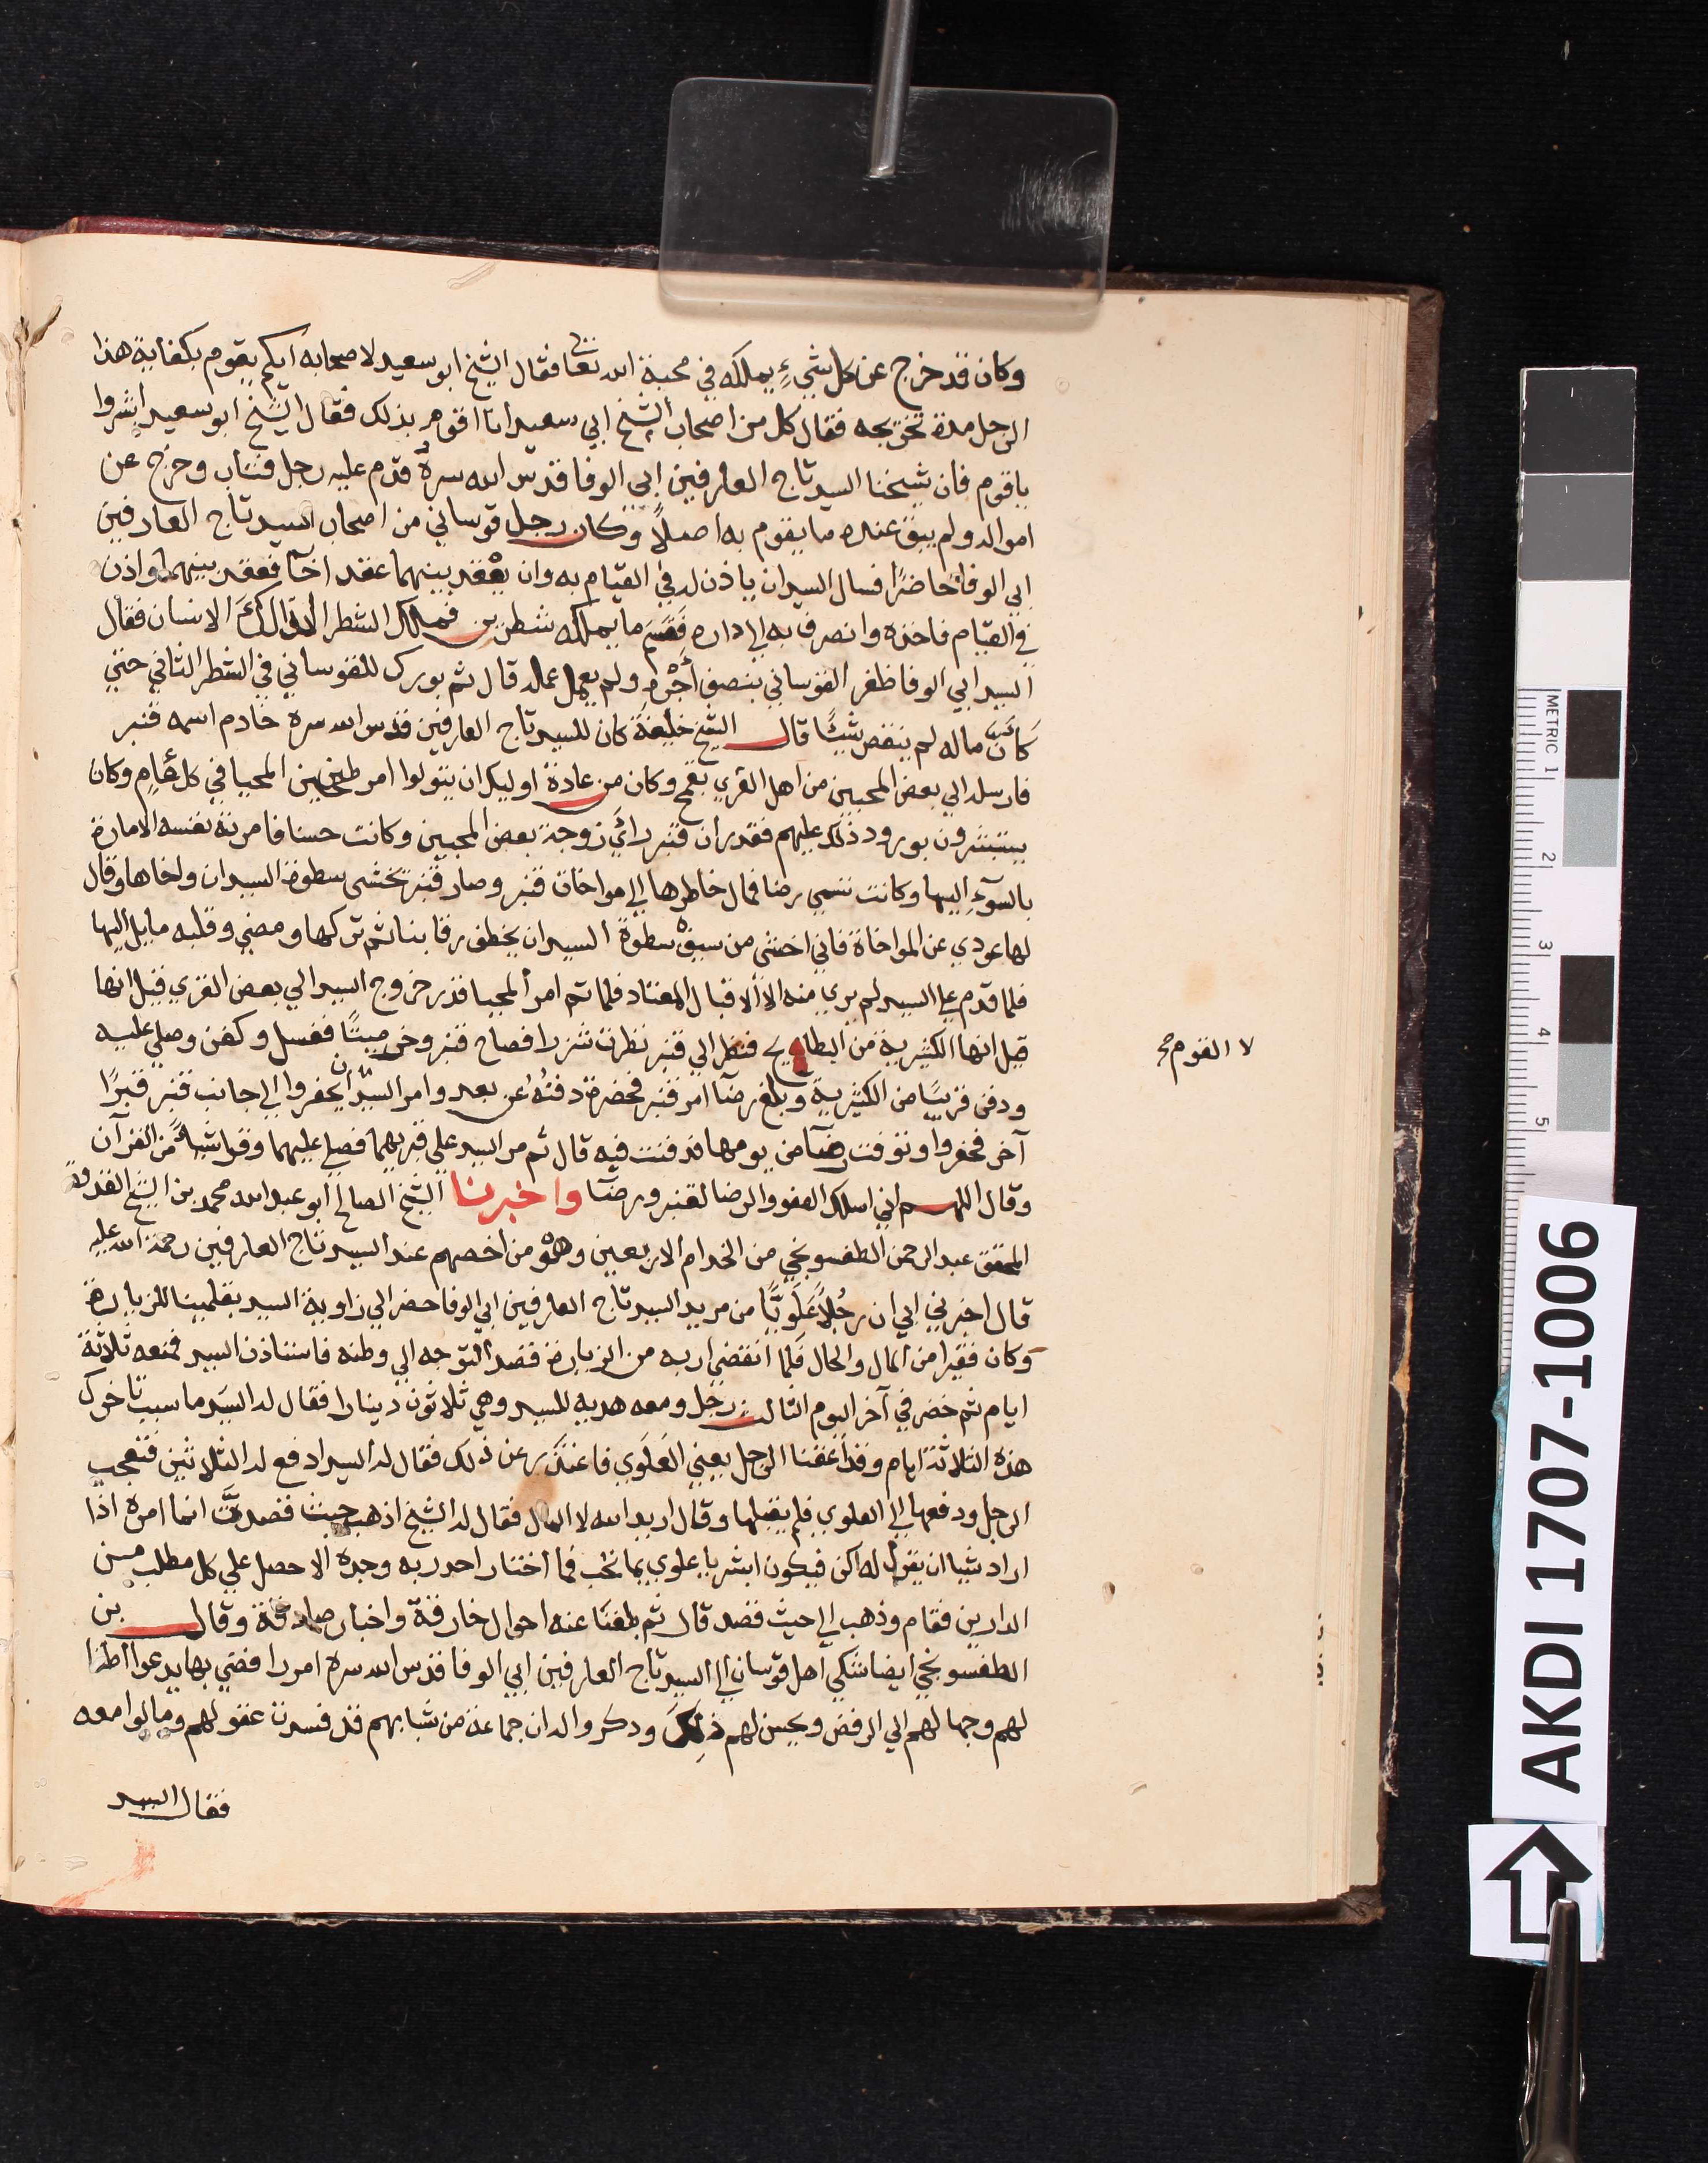 وكان قد خرج عن كل شيءٍ يملكه في محبة الله تعالى فقال الشيخ ابو سعيد لاصحابه ايكم يقوم بكفاية هذا
الرجل مدة تخريجه فقال كل من اصحاب الشيخ ابي سعيد انا اقوم بذلك فقال الشيخ ابو سعيد ابشروا
ياقوم فان شيخنا السيد تاج العارفين ابي الوفا قدس الله سره قدم عليه رجل فتاب وخرج عن
امواله ولم يبق عنده ما يقوم به اصلاً وكان رجل قوساني من اصحاب السيد تاج العارفين
ابي الوفا حاضرًا فسال السيد ان ياذن له في القيام به وان يعقد بينهما عقد اخآ فعقد بينهما واذن
في القيام فاخذه وانصرف به الي داره فقسم ما يملكه شطرين فملك الشطر الاول ذلك الانسان فقال
السيد ابي الوفا ظفر القوساني بنصف أجره ولم يعمل عمله قال ثم بورك للقوساني في الشطر الثاني حتي
كأن ماله لم ينقص شيئًا قال الشيخ خليفة كان للسيد تاج العارفين قدس الله سره خادم اسمه قنبر
فارسله الي بعض المحبين من اهل القري بقمح وكان من عادة اوليك ان يتولوا امر طحين المحيا في كل عام وكان
يستبشرون بورود ذلك عليهم فقدر ان قنبر رأي زوجة بعض المحبين وكانت حسنا فامرته نفسه الامارة
بالسوءِ اليها وكانت تسمي رضا فمال خاطرها الي مواخاة قنبر وصار قنبر يخشى سطوة السيد ان واخاها وقال
لها عودي عن المواخاة فاني اخشى من سيف سطوة السيد ان يخطف رقابنا ثم تركها ومضي وقلبه مايل اليها
فلما قدم علي السيد لم يري منه الا الاقبال المعتاد فلما تم امر المحيا قدر خروج السيد الي بعض القري قيل انها
قيل انها الكثيرية من البطايح فنظر الي قنبر نظرة شزرا فصاح قنبر وخر ميتًا فغسل وكفن وصلي عليه
ودفن قريبًا من الكثيرية وبلغ رضآ امر قنبر فحضرة دفنه عن بعد وامر السيد ان يحفروا الي جانب قنبر قبرًا
آخر فحفروا وتوفت رضآ من يومها فدفنت فيه قال ثم مر السيد علي قبريهما فصلي عليهما وقرا شيأً من القرآن
وقال اللهم اني اسلك العفو والرضا لقنبر ورضآ واخبرنا الشيخ الصالح ابو عبد الله محمد بن الشيخ القدوة
المحقق عبد الرحمن الطفسونجي من الخدام الاربعين وهو من اخصهم عند السيد تاج العارفين رحمة الله عليه
قال اخبرني ابي ان رجُلاً عَلَويًّا من مريد السيد تاج العارفين ابي الوفا حضر الي زاوية السيد بقلمينا للزيارة
وكان فقيرا من المال والحال فلما انقضي اربه من الزيارة قصد التوجه الي وطنه فاستاذن السيد فمنعه ثلاثة
ايام ثم حضر في آخر اليوم الثالث رجل ومعه هدية للسيد وهي ثلاثون دينارا فقال له السيد ما سبب تاخرك
هذه الثلاثة ايام وقد اعقنا الرجل يعني العَلَوي فاعتذر عن ذلك فقال له السيد ادفع له الثلاثين فتعجب
الرجل ودفعها الي العلوي فلم يقبلها وقال اريد الله لا المال فقال له الشيخ اذهب حيث قصدت انما امره اذا
اراد شيا ان يقول له كن فيكون ابشر يا علوي بما تحب فما اختار احد ربه وجده الا حصل علي كل مطلب من
الدارين فقام وذهب الي حيث قصد قال ثم بلغنا عنه احوال خارقة واخبار صادقة وقال بن
الطفسونجي ايضا شكي اهل قوسان الي السيد تاج العارفين ابي الوفا قدس الله سره امورا افضي بها يدعوا
لهم وجها لهم الي الرفض ويحسن لهم ذلك وذكروا له ان جماعة من شبابهم قد فسدت عقولهم ومالوا معه
فقال السيد
لا القوم صح
AKDI 1707-1006
METRIC 1 2 3 4 5